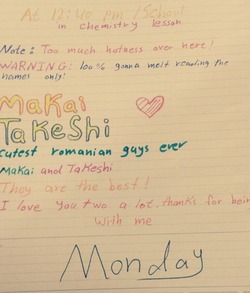 At 12:40 pm /School
in chemistry lesson
Note: Too much hotness over here!
WARNING: 100% gonna melt reading the
names only!
MaKai
TaKeShi
cutest romanian guys ever
Makai and Takeshi
They are the best!
I love you two a lot, thanks for bein
With me
Monday